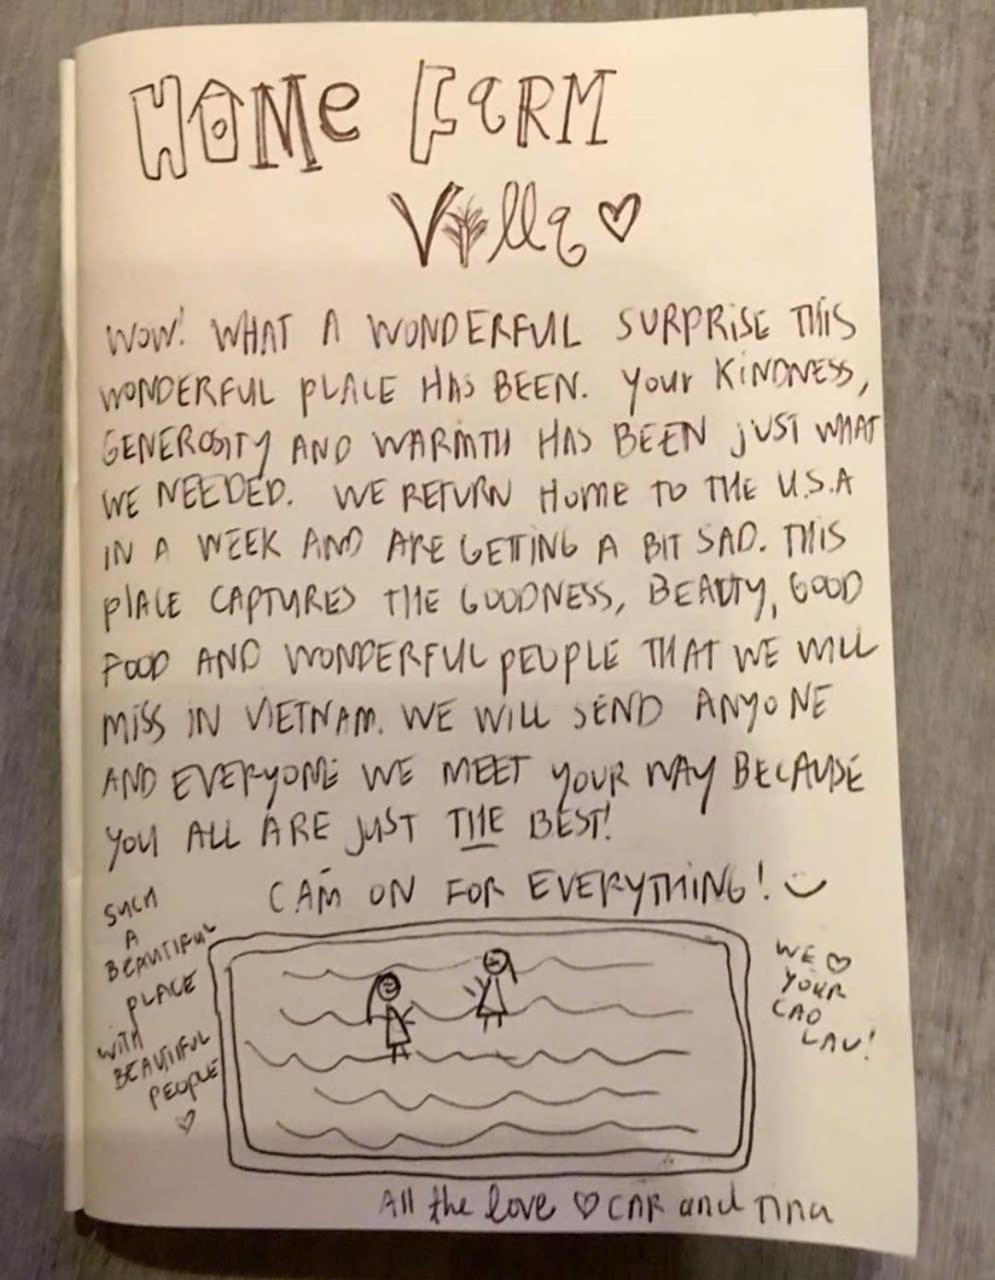 HOMe FaRM
Villa ♡
WOW! WHAT A WONDERFUL SURPRiSE THIS
WONDERFUL PLACE HAS BEEN. Your KiNDNESS,
GENEROSITY AND WARMTH HAS BEEN JUST WHAT
WE NEEDED. WE RETURN Home TO THE U.S.A
IN A WEEK AND ARE GETTING A BIT SAD. THIS
PlACE CAPTURES THE GOODNESS, BEAUTY, GOOD
FOOD AND WONDERFUL PEOPLE THAT WE WILL
MISS iN VIETNAM. WE WILL SEND ANYONE
AND EVERYONE WE MEET YOUR WAY BECAUSE
YOU ALL ARE JUST THE BEST!
CAM ON FOR EVERYTHING!
SUCH
A
BEAUTIFUL
PLACE
WITH
BEAUTIFUL
PEOPLE
♡
WE ♡
YOUR
CAO
LAU!
All the love ♡ CAR and Tina